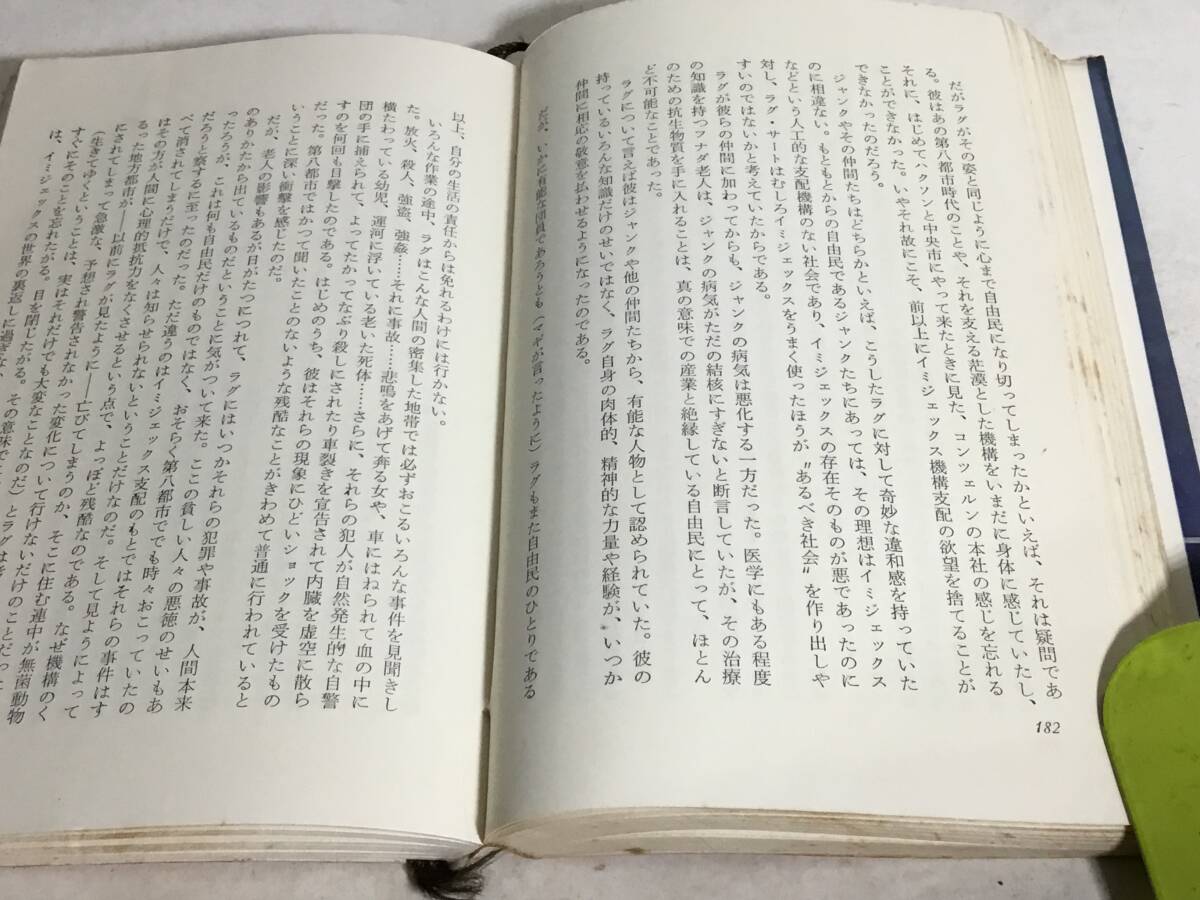 だがラグがその姿と同じように心まで自由民になり切ってしまったかといえば、それは疑問であ
る。彼はあの第八都市時代のことや、それを支える茫漠とした機構をいまだに身体に感じていたし、
それに、はじめてハクソンと中央市にやって来たときに見た、コンツェルンの本社の感じを忘れる
ことができなかった。いやそれ故にこそ、前以上にイミジェックス機構支配の欲望を捨てることが
できなかったのだろう。
ジャンクやその仲間たちはどちらかといえば、こうしたラグに対して奇妙な違和感を持っていた
のに相違ない。もともとからの自由民であるジャンクたちにあっては、その理想はイミジェックス
などという人工的な支配機構のない社会であり、イミジェックスの存在そのものが悪であったのに
対し、ラグ・サートはむしろイミジェックスをうまく使ったほうが〝あるべき社会〟を作り出しや
すいのではないかと考えていたからである。
ラグが彼らの仲間に加わってからも、ジャンクの病気は悪化する一方だった。医学にもある程度
の知識を持つフナダ老人は、ジャンクの病気がただの結核にすぎないと断言していたが、その治療
のための抗生物質を手に入れることは、真の意味での産業と絶縁している自由民にとって、ほとん
ど不可能なことであった。
ラグについて言えば彼はジャンクや他の仲間たちから、有能な人物として認められていた。彼の
持っているいろんな知識だけのせいではなく、ラグ自身の肉体的、精神的な力量や経験が、いつか
仲間に相応の敬意を払わせるようになったのである。
だが、いかに有能な団員であろうとも（マギが言ったように）ラグもまた自由民のひとりである
182
以上、自分の生活の責任からは免れるわけには行かない。
いろんな作業の途中、ラグはこんな人間の密集した地帯では必ずおこるいろんな事件を見聞きし
た。放火、殺人、強盗、強姦……それに事故……悲鳴をあげて奔る女や、車にはねられて血の中に
横たわっている幼児、運河に浮いている老いた死体……さらに、それらの犯人が自然発生的な自警
団の手に捕えられて、よってたかってなぶり殺しにされたり車裂きを宣告されて内臓を虚空に散ら
すのを何回も目撃したのである。はじめのうち、彼はそれらの現象にひどいショックを受けたもの
だった。第八都市ではかつて聞いたことのないような残酷なことがきわめて普通に行われていると
いうことに深い衝撃を感じたのだ。
だが、老人の影響もあるが日がたつにつれて、ラグにはいつかそれらの犯罪や事故が、人間本来
のありかたから出ているものだということに気がついて来た。ここの貧しい人々の悪徳のせいもあ
ったろうが、これは何も自由民だけのものではなく、おそらく第八都市ででも時々おこっていたの
だろうと察するに至ったのだった。ただ違うのはイミジェックス支配のもとではそれらの事件はす
べて消されてしまうだけで、人々は知らせられないということだけなのだ。そして見ようによって
はその方が人間に心理的抵抗力をなくさせるという点で、よっぽど残酷なのである。なぜ機構のく
るった地方都市が――以前にラグが見たように――亡びてしまうのか、そこに住む連中が無菌動物
にされてしまって急激な、予想され警告されなかった変化について行けないだけのことだった
（生きてゆくということは、実はそれだけでも大変なことなのだ）とラグは
すぐにそのことを忘れたがる。目を閉じたがる。その意味で
は、イミジェックスの世界の裏返しに過ぎな